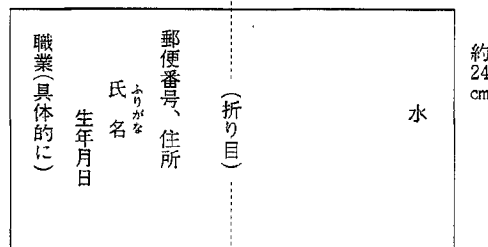 約24cm
水
(折り目)
郵便番号、住所
ふりがな
氏名
生年月日
職業(具体的に)